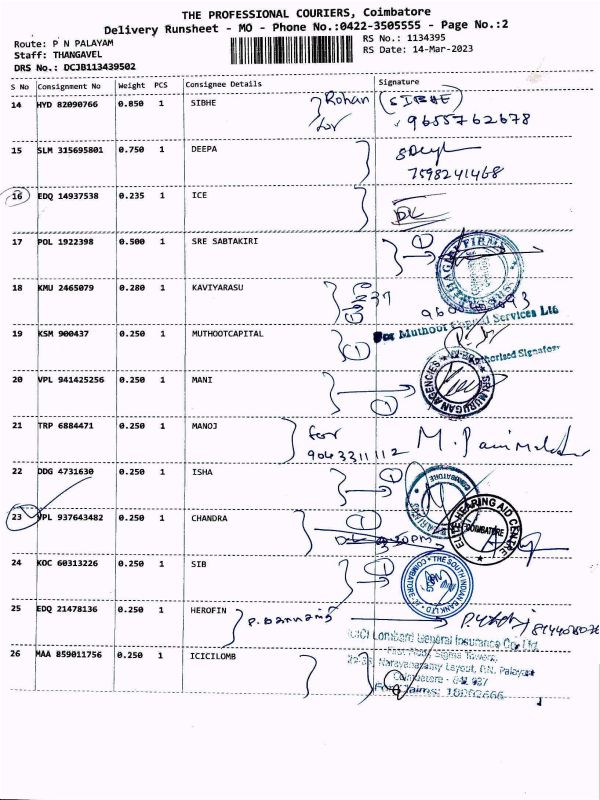 THE PROFESSIONAL COURIERS, Coimbatore
Delivery Runsheet - MO - Phone No.:0422-3505555 - Page No.:2
Route: P N PALAYAM
RS No.: 1134395
Staff: THANGAVEL
RS Date: 14-Mar-2023
DRS No.: DCJB113439502
S No Consignment No Weight PCS Consignee Details Signature
14 HYD 82090766 0.850 1 SIBHE Rohan (SIBHE)
for 9655762678
15 SLM 315695801 0.750 1 DEEPA
7598241468
16 EDQ 14937538 0.235 1 ICE
17 POL 1922398 0.500 1 SRE SABTAKIRI 1
18 KMU 2465079 0.280 1 KAVIYARASU
19 KSM 900437 0.250 1 MUTHOOTCAPITAL 1 For Muthoot Capital Services Ltd
Authorised Signatory
20 VPL 941425256 0.250 1 MANI 1 SRI MURUGAN AGENCIES
21 TRP 6884471 0.250 1 MANOJ for
9043311112
22 DDG 4731630 0.250 1 ISHA 1 COIMBATORE
23 VPL 937643482 0.250 1 CHANDRA 1 HEARING AID CENTRE
COIMBATORE
24 KOC 60313226 0.250 1 SIB 1 THE SOUTH INDIAN BANK LTD
25 EDQ 21478136 0.250 1 HEROFIN
ICICI Lombard General Insurance Co. Ltd.
26 MAA 859011756 0.250 1 ICICILOMB First Floor, Sigma Towers,
Narayanasamy Layout, P.N. Palayam
Coimbatore - 641 037